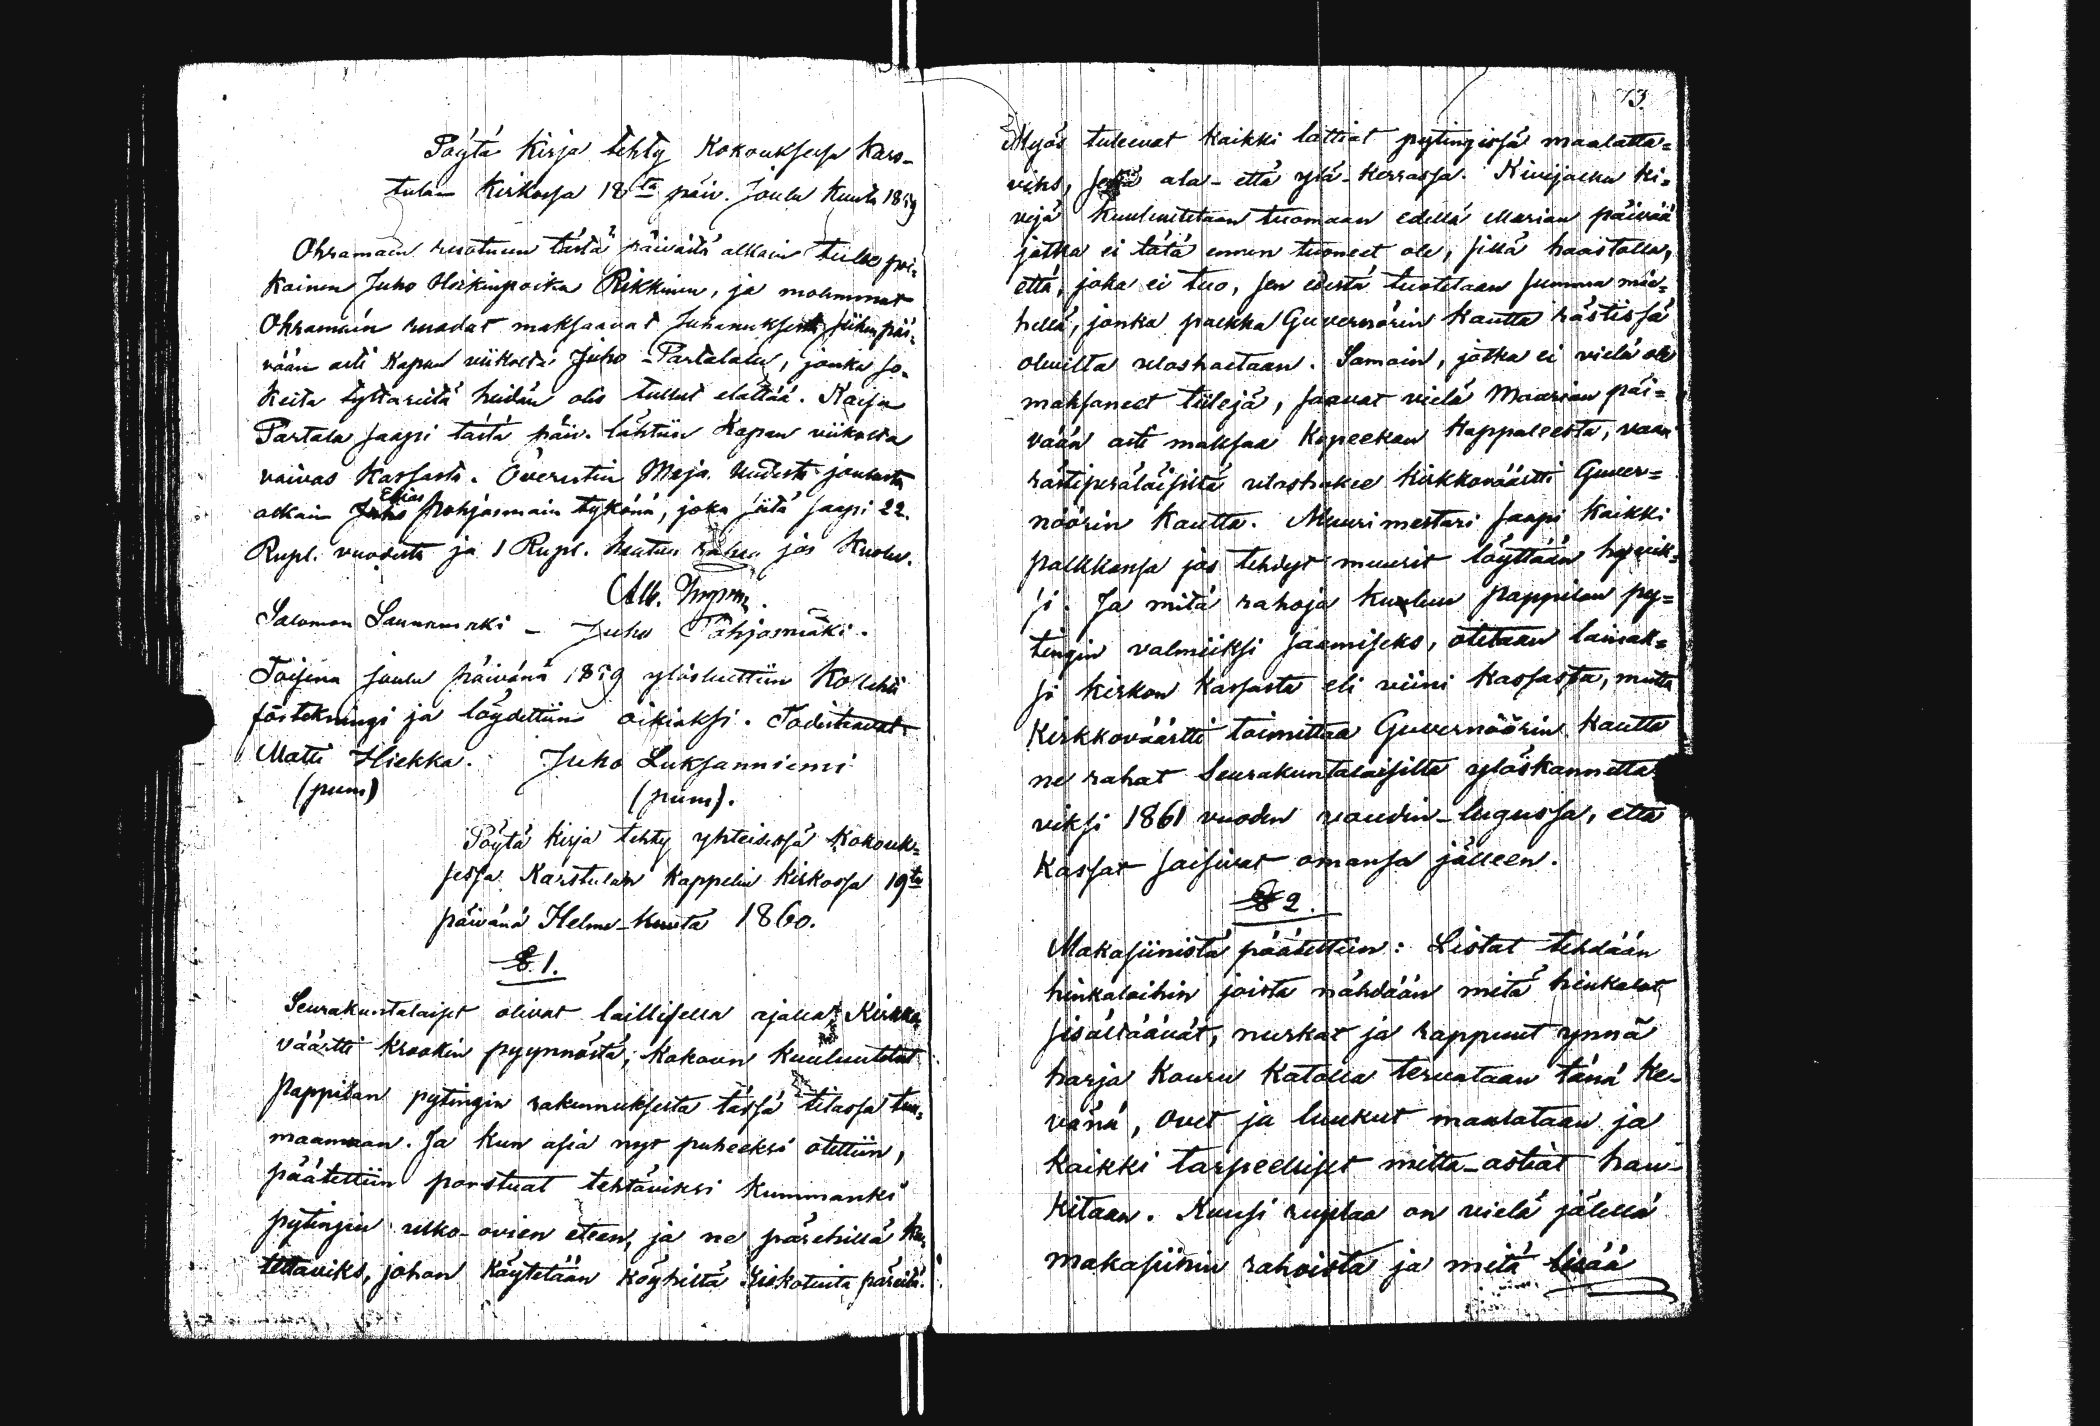 Pöytä Kirja tehty Kokouksesa Kars-
tulan Kirkosa 18ta päiv. Joulu Kuuta 1859
Ohramäin ruotuun tästä päivästä alkain tulee poi-
kainen Juho Heikinpoika Rikkinen, ja molemmat
Ohramäin ruodat maksaavat Juhanuksesta siihen päi-
vään asti Kapan viikosta Juho Partalalle, jonka so-
keita tyttäreitä heidän olis tullut elättää. Kaisa
Partala saapi tästä päiv. lähtien Kapan viikosta
vaivas Kassasta. Överstin Maja uudesta joulusta
alkain Elias Pohjosmäin tykönä, joka siitä saapi 22.
Rupl. vuodesta ja 1 Rupl. hautaus rahaa jos Kuolee.
Salomon Saunamäki - Juho Pohjosmäki.
Toisena joulu päivänä 1859 ylösluettiin Kollehti
förtekningi ja löydettiin oikiaksi. Todistavat
Matti Hiekka. Juho Luksanniemi
(pum) (pum).
Pöytä Kirja tehty yhteisessä Kokouk=
sessa Karstulan Kappelin Kirkossa 19ta
päivänä Helme-Kuuta 1860.
§ 1.
Seurakuntalaiset olivat laillisella ajalla Kirkko
väärtti Krookin pyynnöstä, kokoon Kuulutetut
pappilan pytingin rakennuksesta tässä tilassa tuu=
maamaan. Ja kun asia nyt puheeksi otettiin,
päätettiin porstuat tehtäviksi kummanki
pytingin ulko-ovien eteen, ja ne pärehillä ka
tettaviks, johon käytetään köyhiltä kiskotuita päreitä.
73.
Myös tulevat kaikki lattiat pytingissä maalatta=
viks, sekä ala- että ylä-kerrassa. Kivijalka ki=
vejä kuulutetaan tuomaan edellä Marian päivää
jotka ei tätä ennen tuoneet ole, sillä haastolla,
että, joka ei tuo, sen edestä tuotetaan summa mie=
hellä, jonka palkka Guvernörin kautta rästissä
olevilta uloshaetaan. Samoin, jotka ei vielä ole
maksaneet tiilejä, saavat vielä Maarian päi=
vään asti maksaa Kopeekan Kappaleesta, vaan
rästiperäläisiltä uloshakee Kirkkoväärtti Guver=
nöörin Kautta. Muurimestari saapi Kaikki
palkkansa jos tehdyt muurit löyttään hyviik=
si. Ja mitä rahoja kuuluu pappilan py=
tingin valmiiksi saamiseks, otetaan lainak=
si kirkon kassasta eli viini kassasta, mutta
Kirkkoväärtti toimittaa Guvernöörin kautta
ne rahat Seurakuntalaisilta ylöskannetta
viksi 1861 vuoden voudin-lugussa, että
Kassat saisivat omansa jälleen.
§ 2.
Makasiinista päätettiin: Listat tehdään
hinkaloihin joista nähdään mitä hinkalot
sisältäävät, nurkat ja rappuut ynnä
harja kouru katolla tervataan tänä ke-
vänä, ovet ja luukut maalataan ja
kaikki tarpeelliset mitta-astiat han-
kitaan. Kuusi ruplaa on vielä jälellä
makasiinin rahoista ja mitä lisää